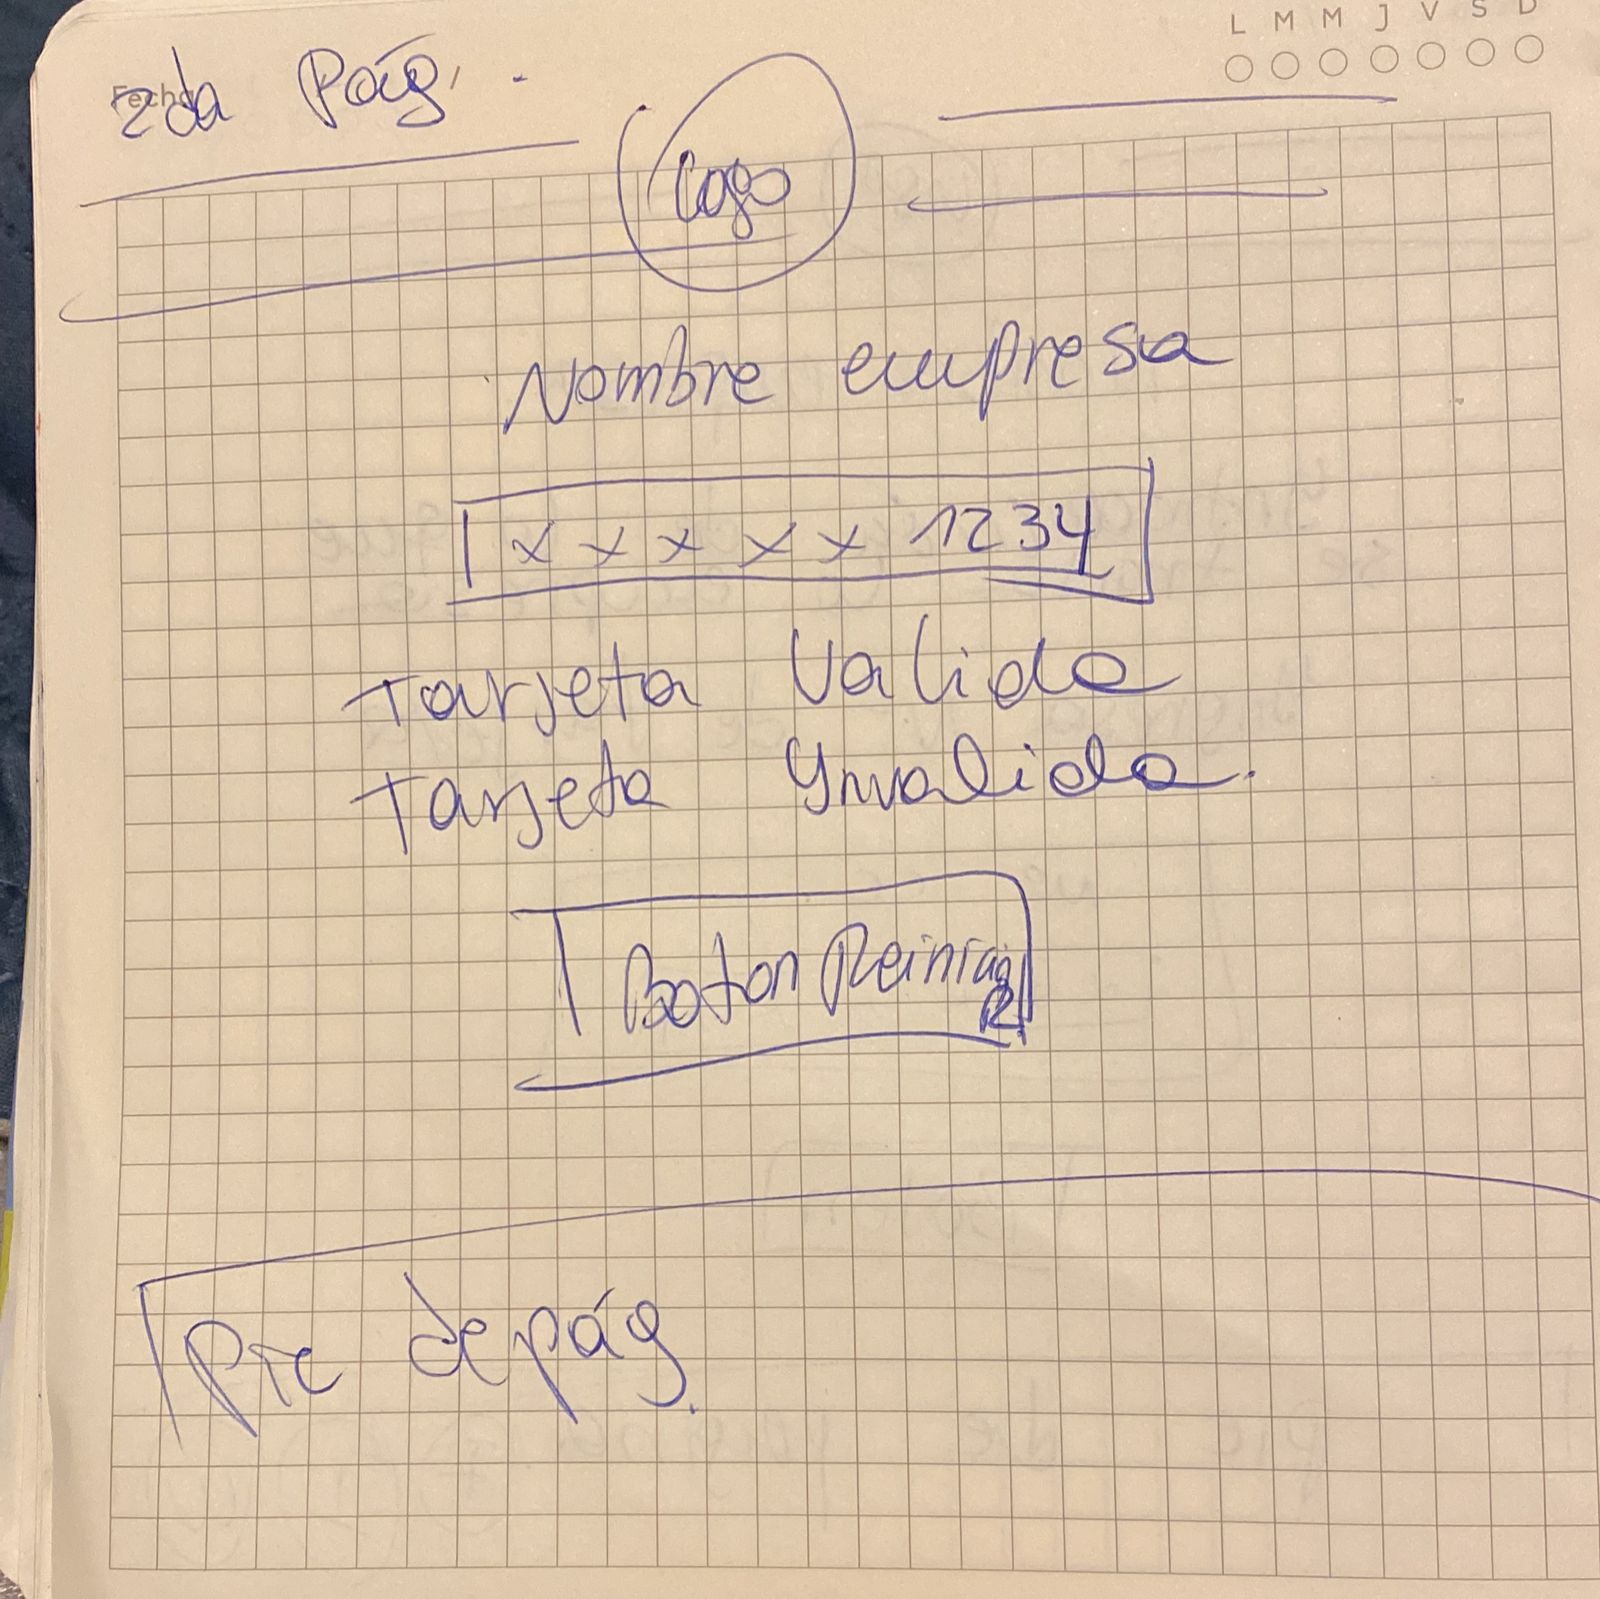 L M M J V S D
Fecha
2da Pág.
Logo
Nombre empresa
x x x x x 1234
Tarjeta Valida
Tarjeta Ynvalida.
Boton Reiniciar
Pie de pág.